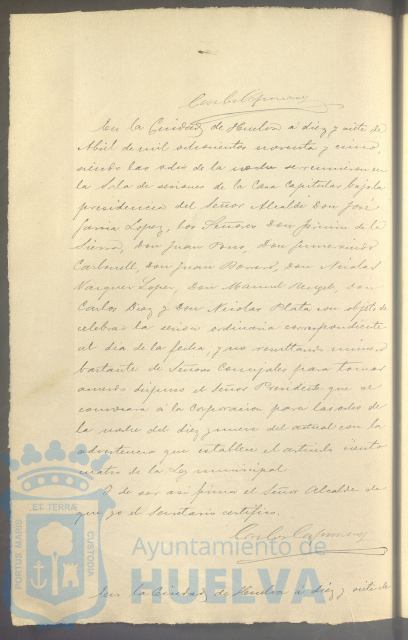 Carlos
En la Ciudad de Huelva á diez y siete de
Abril de mil ochocientos noventa y cinco,
siendo las ocho de la noche se reunieron en
la Sala de sesiones de la Casa Capitular bajo la
presidencia del Señor Alcalde Don José
García Lopez, los Señores Don de la
Sierra, Don Juan Don
Carbonell, Don Juan Don Nicolas
Vazquez Lopez, Don Manuel Don
Carlos Diaz y Don Nicolas Plata con objeto de
celebrar la sesion ordinaria correspondiente
al dia de la fecha, y no resultando número
bastante de Señores Concejales para tomar
acuerdo dispuso el Señor Presidente que se
convocara á la Corporacion para las ocho de
la noche del diez y nueve del actual con la
advertencia que establece el artículo ciento
cuatro de la Ley municipal.
Y de ser asi firma el Señor Alcalde de
que yo el Secretario certifico.
Carlos
En la Ciudad de Huelva á diez y siete de
PORTUS MARIS ET TERRÆ CUSTODIA
Ayuntamiento de
HUELVA